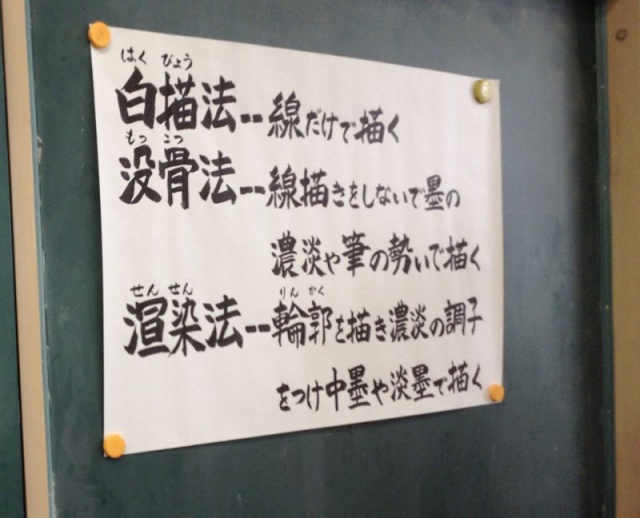 はく びょう
白描法--線だけで描く
もっ こつ
没骨法--線描きをしないで墨の
濃淡や筆の勢いで描く
せん せん りん かく
渲染法--輪郭を描き濃淡の調子
をつけ中墨や淡墨で描く